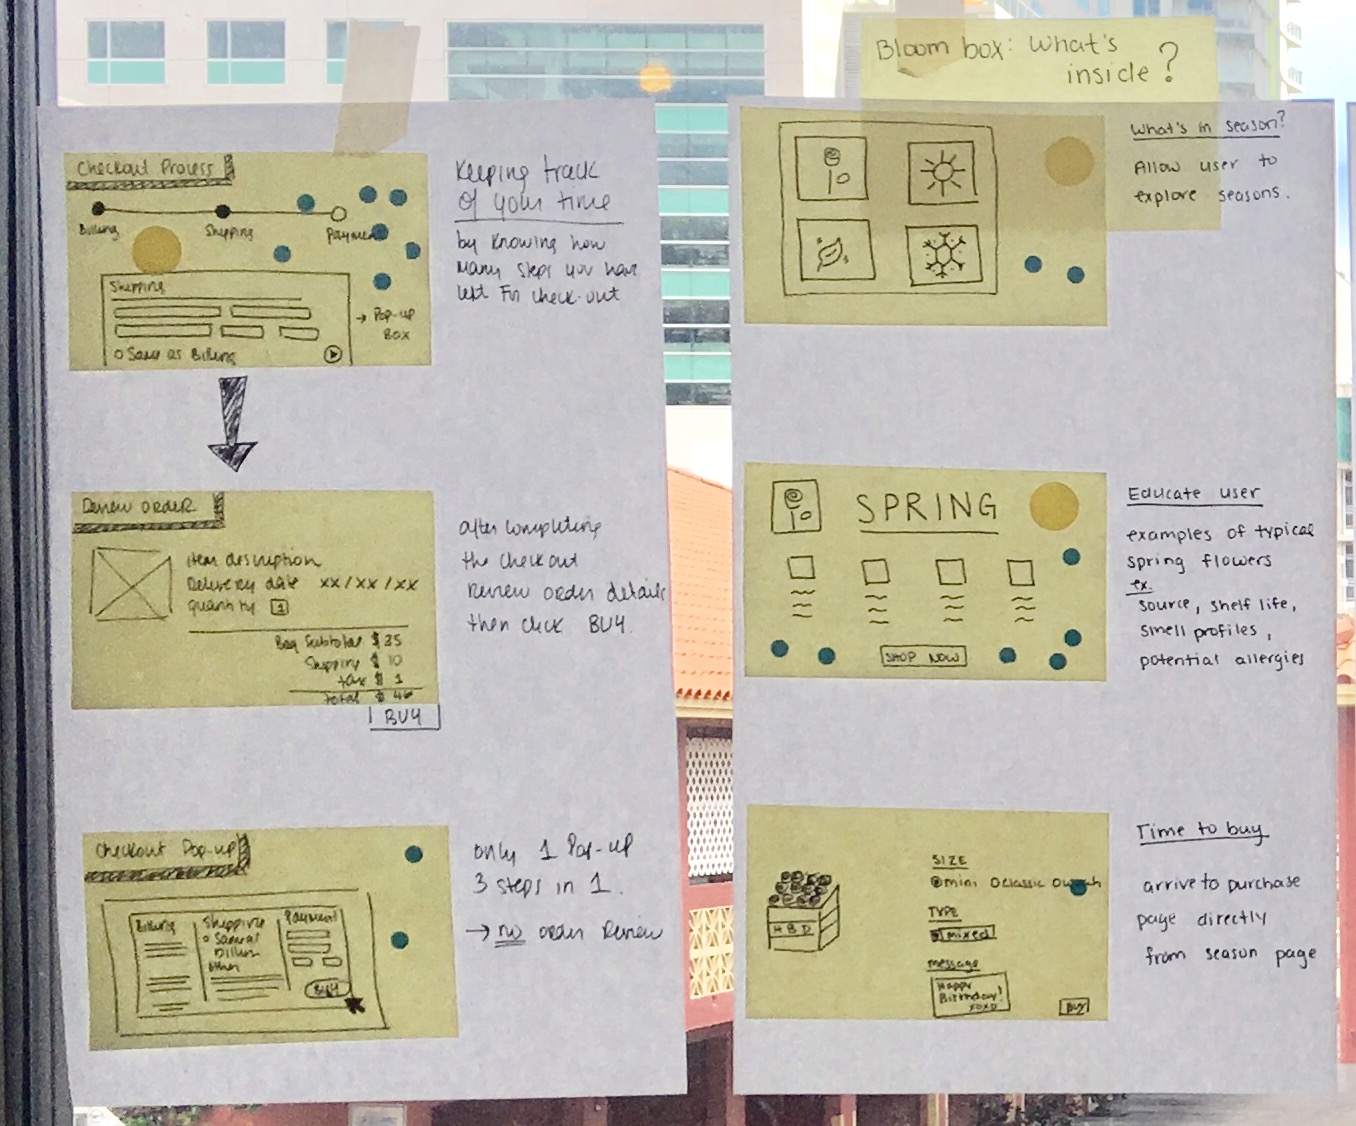 Checkout Process
Billing
Shipping
Payment
Shipping
→ Pop-up
Box
Same as Billing
Keeping track
of your time
by knowing how
many steps you have
left for check-out
Review order
item description
Delivery date xx/xx/xx
quantity 1
Bag Subtotal $35
Shipping $10
tax $1
total $46
BUY
after completing
the checkout
Review order details
then click BUY.
Checkout Pop-up
Billing
Shipping
Payment
Same as
Billing
other
BUY
only 1 Pop-up
3 steps in 1.
→ no order review
Bloom box: What's
inside?
What's in season?
Allow user to
explore seasons.
SPRING
SHOP NOW
Educate user
examples of typical
spring flowers
ex.
source, shelf life,
smell profiles,
potential allergies
HBD
SIZE
mini classic
TYPE
mixed
message
Happy
Birthday!
xoxo
BUY
Time to buy
arrive to purchase
page directly
from season page